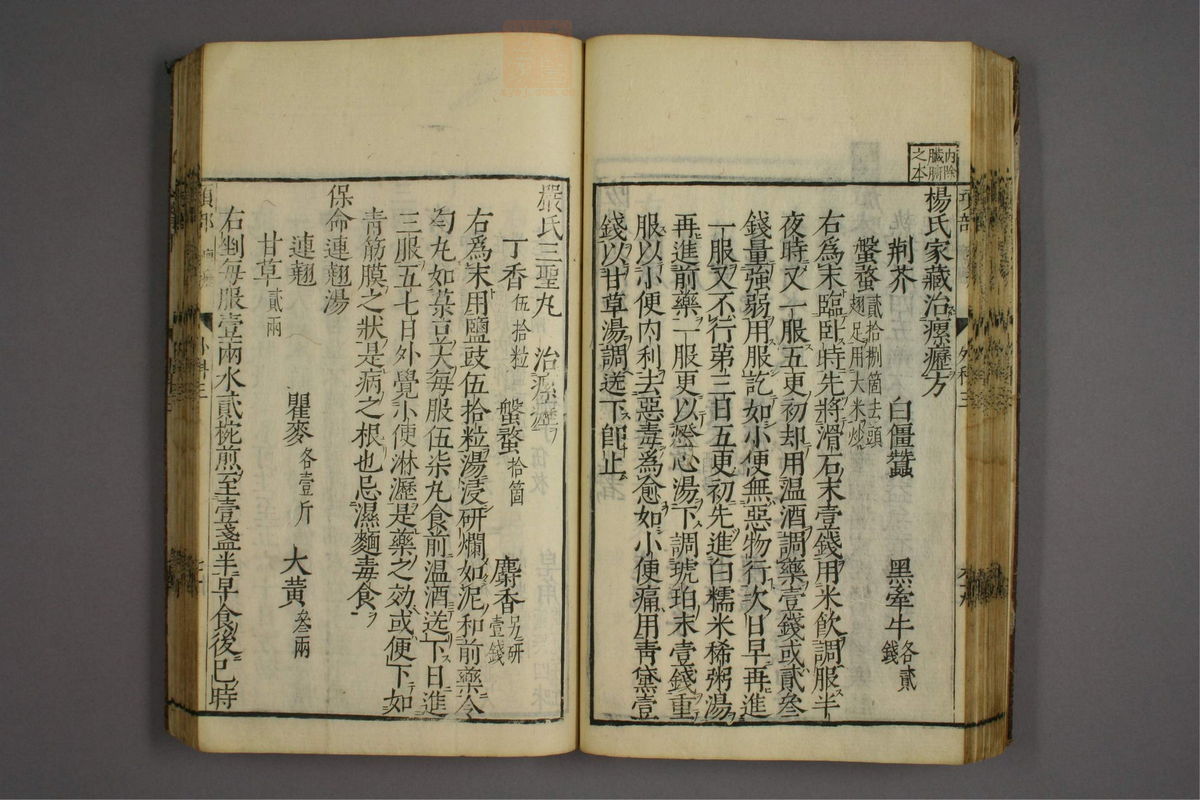 內除
臟腑
之本
楊氏家藏治瘰癧方
荆芥 白僵蠶 黑牽牛各貳錢
盤蝥貳拾捌箇去頭翅足用大米炒
右爲末臨臥時先將滑石末壹錢用米飲調服半
夜時又一服五更初却用温酒調藥壹錢或貳叁
錢量強弱用服訖如小便無惡物行次日早再進
一服又不行第三日五更初先進白糯米稀粥湯
再進前藥一服更以燈心湯下調琥珀末壹錢重
服以小便內利去惡毒爲愈如小便痛用靑黛壹
錢以甘草湯調送下卽止
嚴氏三聖丸 治瘰癧
丁香伍拾粒 盤蝥拾箇 麝香另研壹錢
右爲末用鹽豉伍拾粒湯浸研爛如泥和前藥令
勻丸如菉豆大每服伍柒丸食前温酒送下日進
三服五七日外覺小便淋瀝是藥之効或便下如
靑筋膜之狀是病之根也忌濕麵毒食
保命連翹湯
連翹 瞿麥各壹斤 大黃叁兩
甘草貳兩
右剉每服壹兩水貳椀煎至壹盞半早食後巳時
項部
外科三